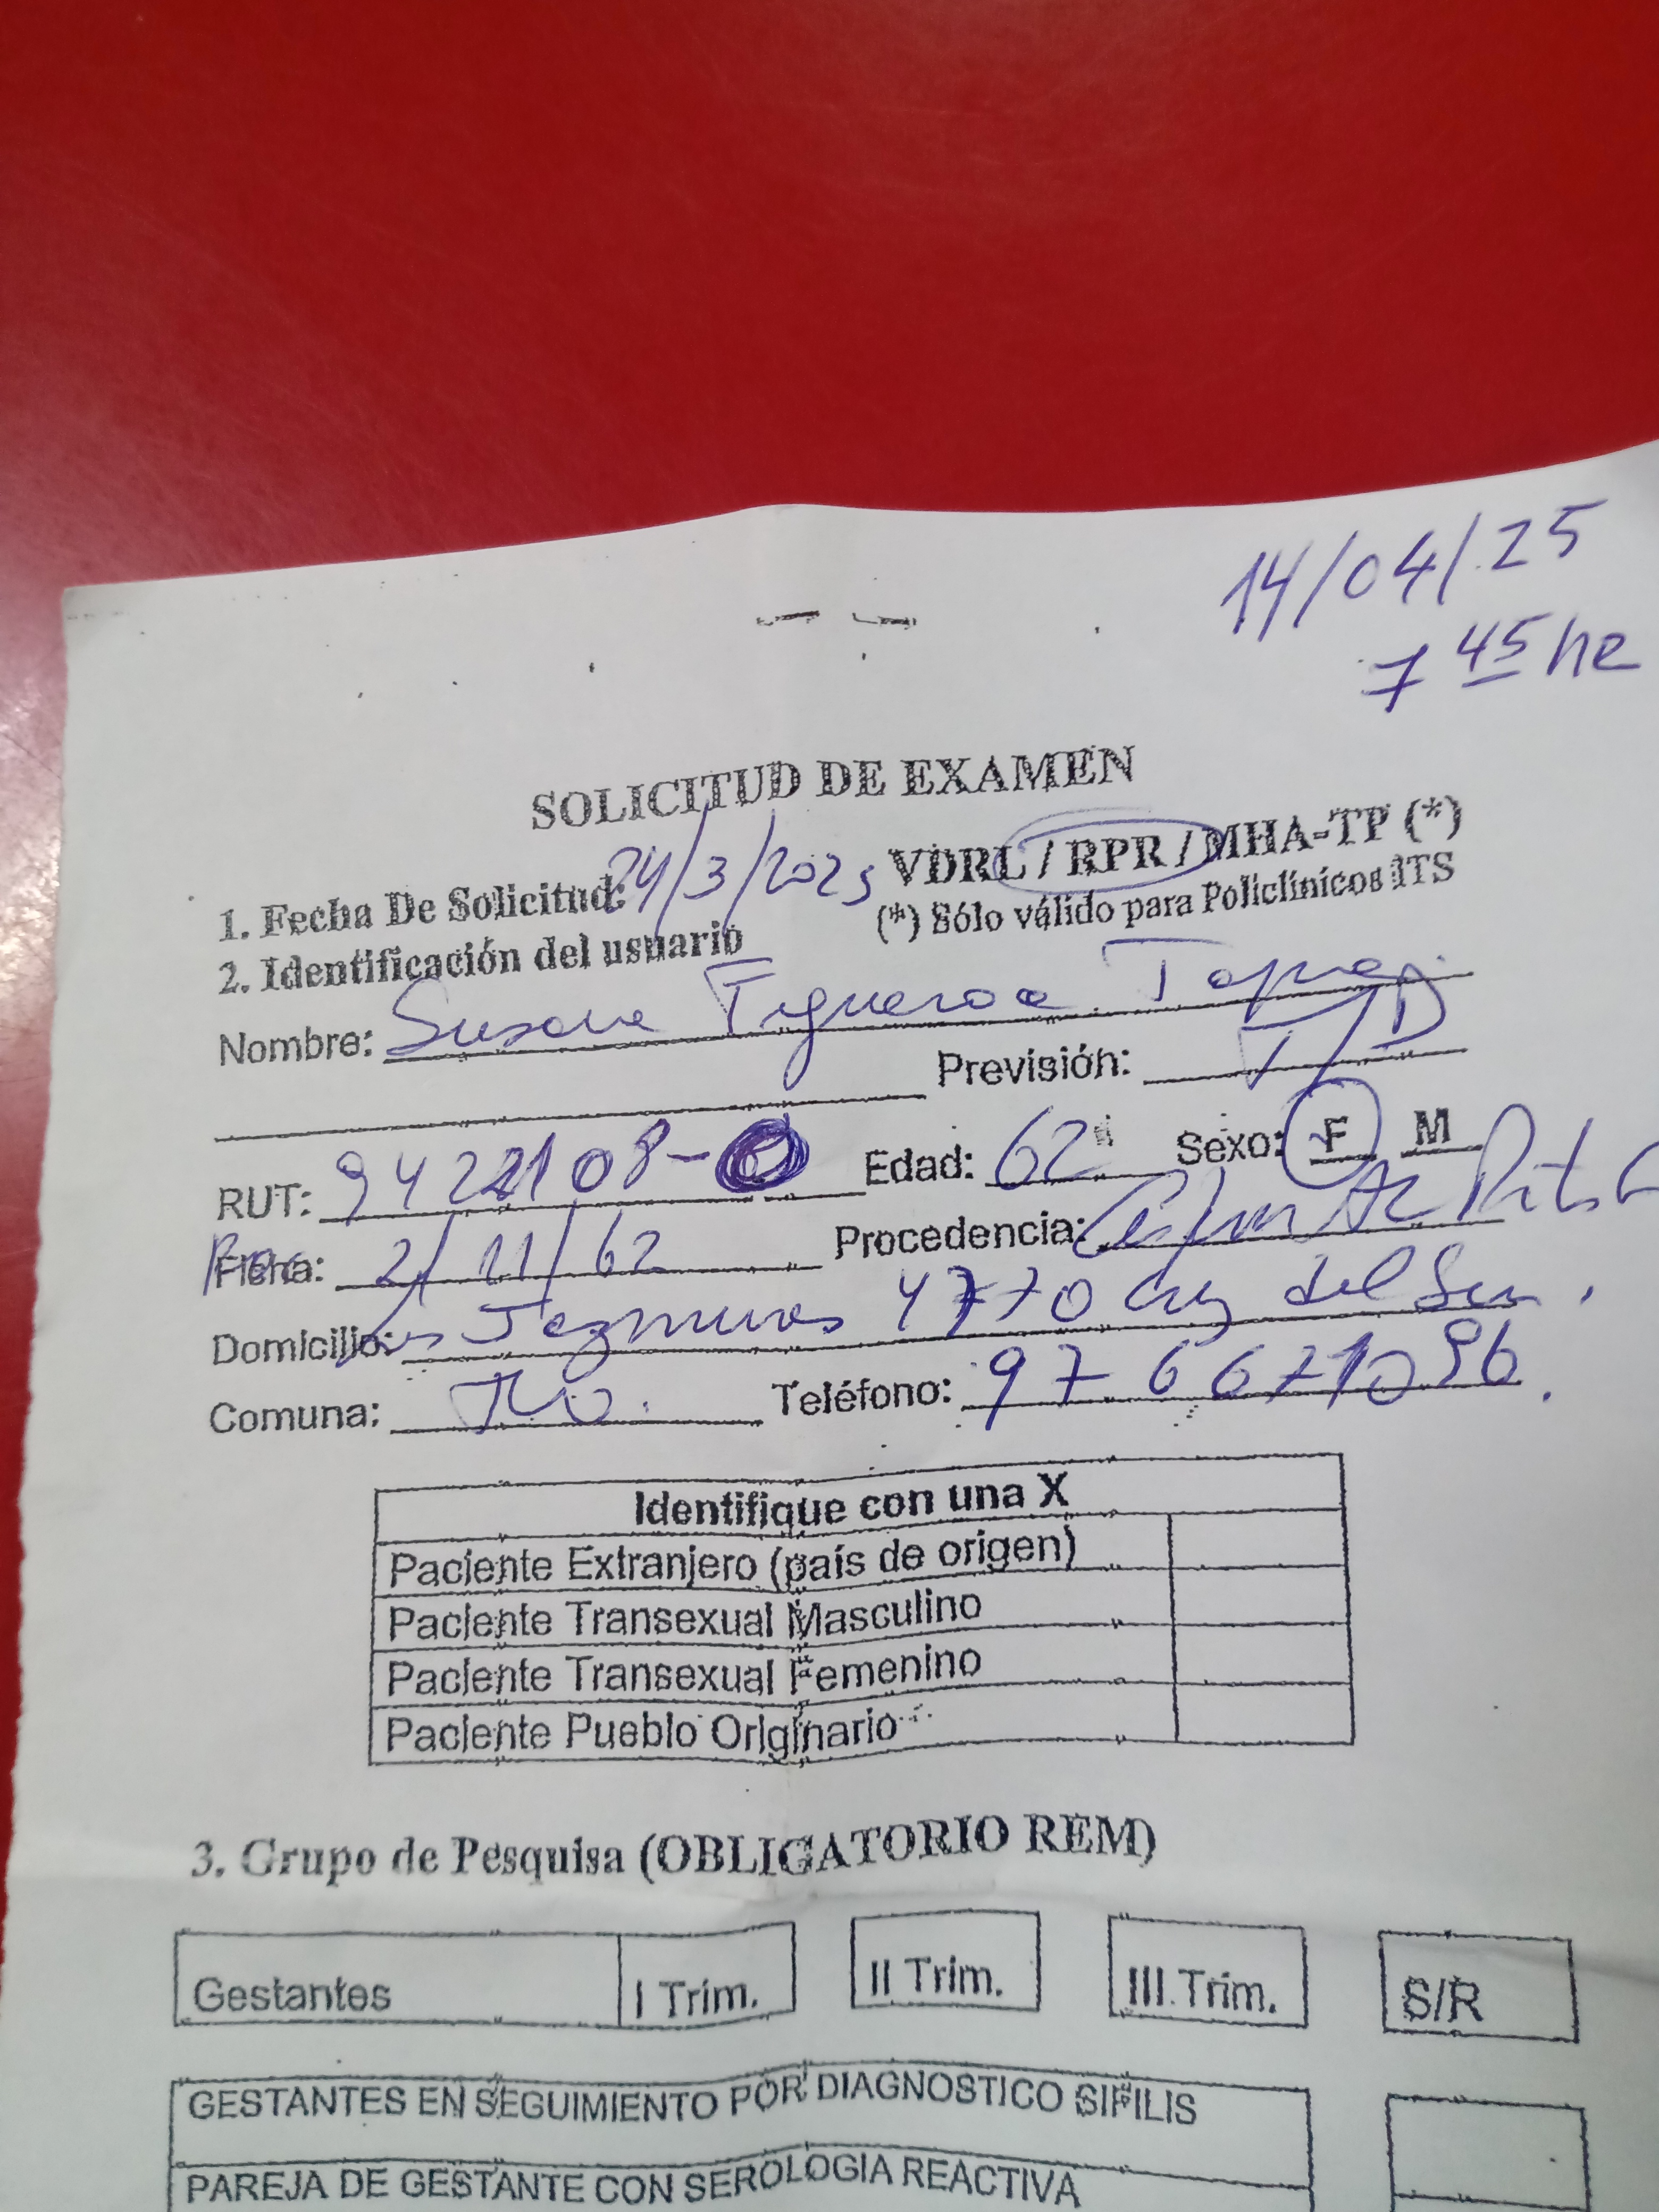 14/04/25
7 45 hr
SOLICITUD DE EXAMEN
1. Fecha De Solicitud: 24/3/2025 VDRL / RPR / MHA-TP (*)
(*) Sólo válido para Policlínicos ITS
2. Identificación del usuario
Nombre: Susana Figueroa Tapia
Previsión:
RUT: 9422108-0 Edad: 62 Sexo: F M
Ficha: 2/11/62 Procedencia:
Domicilio: Los Jazmines 4770 Cruz del Sur.
Comuna: Teléfono: 97 6671096.
Identifique con una X
Paciente Extranjero (país de origen)
Paciente Transexual Masculino
Paciente Transexual Femenino
Paciente Pueblo Originario
3. Grupo de Pesquisa (OBLIGATORIO REM)
Gestantes I Trim. II Trim. III Trim. S/R
GESTANTES EN SEGUIMIENTO POR DIAGNOSTICO SIFILIS
PAREJA DE GESTANTE CON SEROLOGIA REACTIVA